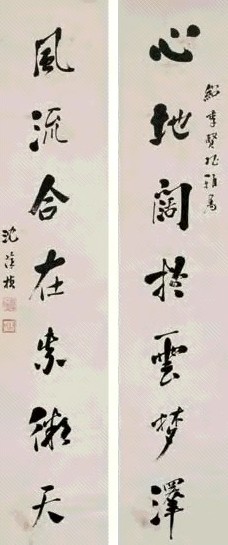 心地闊於雲夢澤
風流合在紫微天
沈葆楨